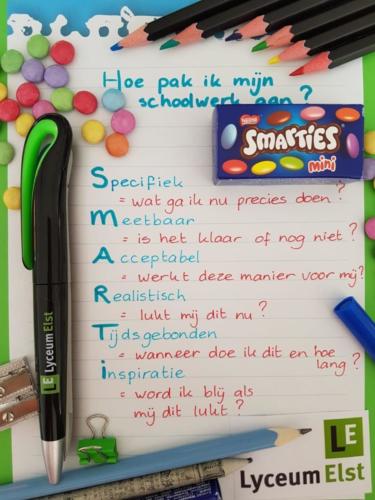 Hoe pak ik mijn
schoolwerk aan?
Nestlé
SMARTIES
mini
Specifiek
= wat ga ik nu precies doen?
Meetbaar
= is het klaar of nog niet?
Acceptabel
= werkt deze manier voor mij?
Realistisch
= lukt mij dit nu?
Tijdsgebonden
= wanneer doe ik dit en hoe
lang?
inspiratie
= word ik blij als
mij dit lukt?
LE Lyceum Elst
LE
Lyceum Elst